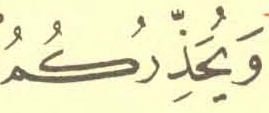 وَيُحَذِّرُكُمُ